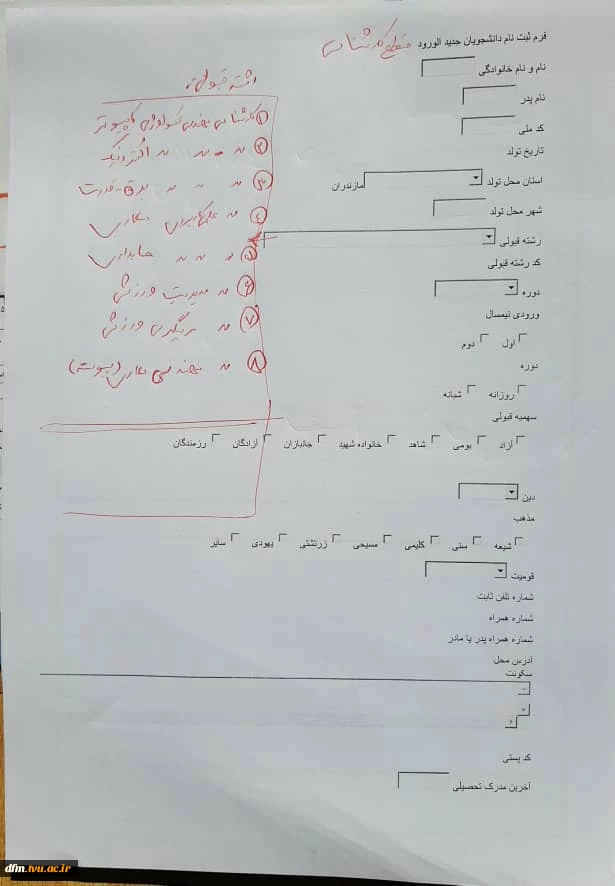 فرم ثبت نام دانشجویان جدید الورود مقطع کارشناسی
نام و نام خانوادگی
نام پدر
کد ملی
تاریخ تولد
استان محل تولد مازندران
شهر محل تولد
رشته قبولی
کد رشته قبولی
دوره
ورودی نیمسال
اول دوم
دوره
روزانه شبانه
سهمیه قبولی
آزاد بومی شاهد خانواده شهید جانبازان آزادگان رزمندگان
دین
مذهب
شیعه سنی کلیمی مسیحی زرتشتی یهودی سایر
قومیت
شماره تلفن ثابت
شماره همراه
شماره همراه پدر یا مادر
آدرس محل
سکونت
کد پستی
آخرین مدرک تحصیلی
رشته قبولی:
۱ کارشناسی مهندسی تکنولوژی کامپیوتر
۲ 〃 〃 〃 الکترونیک
۳ 〃 〃 〃 برق-قدرت
۴ 〃 علمی کاربردی معماری
۵ 〃 〃 〃 حسابداری
۶ 〃 مدیریت ورزشی
۷ 〃 مربیگری ورزشی
۸ 〃 مهندسی معماری (پیوسته)
dfm.tvu.ac.ir